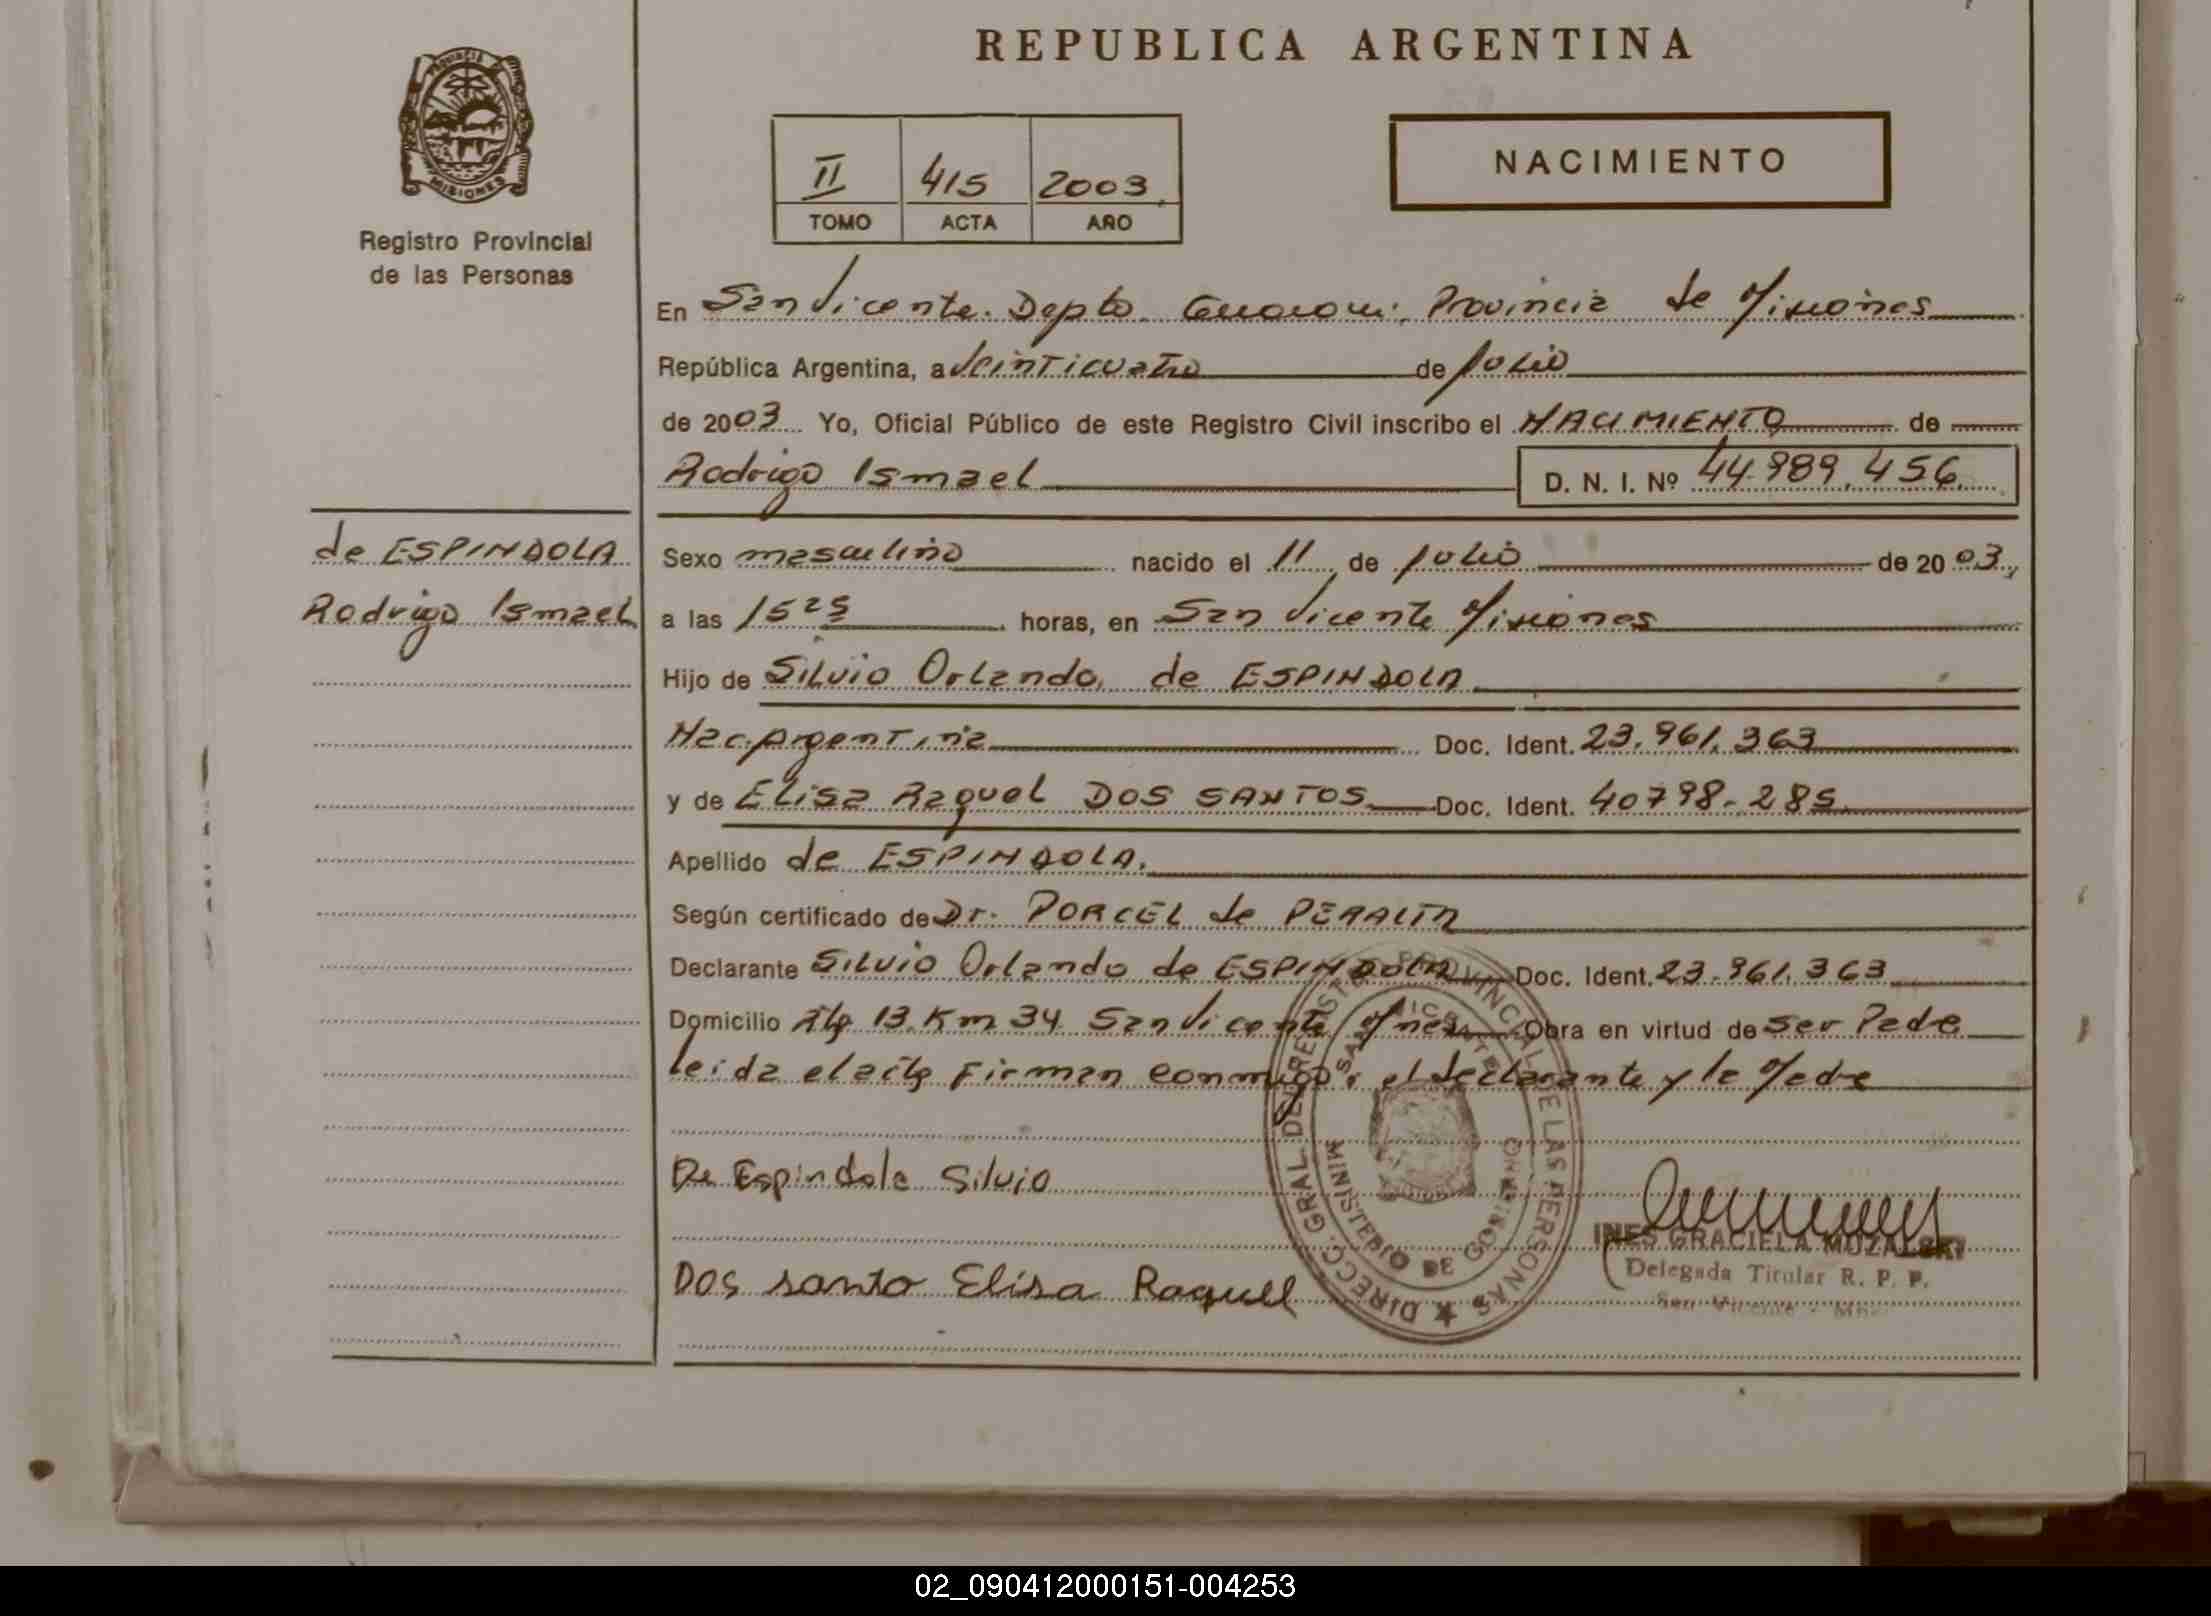 REPUBLICA ARGENTINA
PROVINCIA
MISIONES
Registro Provincial
de las Personas
II 415 2003
TOMO ACTA AÑO
NACIMIENTO
En San Vicente. Depto. Guarani, Provincia de Misiones
República Argentina, a veinticuatro de Julio
de 2003 Yo, Oficial Público de este Registro Civil inscribo el NACIMIENTO de
Rodrigo Ismael D. N. I. Nº 44.989.456
de ESPINDOLA
Rodrigo Ismael
Sexo masculino nacido el 11 de Julio de 2003,
a las 15 25 horas, en San Vicente Misiones
Hijo de Silvio Orlando, de ESPINDOLA
Nac. Argentina Doc. Ident. 23.961.363
y de Elisa Raquel DOS SANTOS Doc. Ident. 40798.285
Apellido de ESPINDOLA.
Según certificado de Dr. PORCEL de PERALTA
Declarante Silvio Orlando de ESPINDOLA Doc. Ident. 23.961.363
Domicilio Rta 13 Km 34 San Vicente Mnes Obra en virtud de ser Padre
leida el acta Firman conmigo: el declarante y la Madre
De Espindola Silvio
Dos santo Elisa Raquell
DIRECC. GRAL. DEL REGISTRO PROVINCIAL DE LAS PERSONAS
SAN VICENTE
MINISTERIO DE GOBIERNO
INES GRACIELA MUZALSKI
Delegada Titular R. P. P.
San Vicente - Mnes
02_090412000151-004253